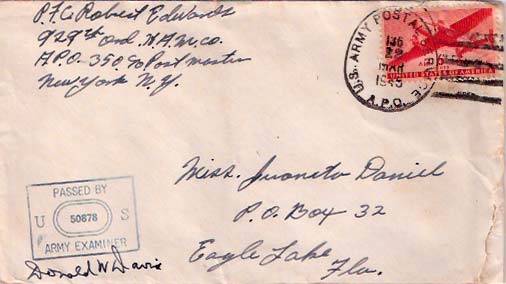 P.F.C. Robert Edwards
928th Ord. H.A.M. co.
A.P.O. 350. % Post master
New York N.Y.
U.S. ARMY POSTAL SERVICE
MAR
1945
A.P.O.
UNITED STATES OF AMERICA
Miss. Juaneta Daniel
P.O. Box 32
Eagle Lake
Fla.
PASSED BY
U 50878 S
ARMY EXAMINER
Donald W Davis